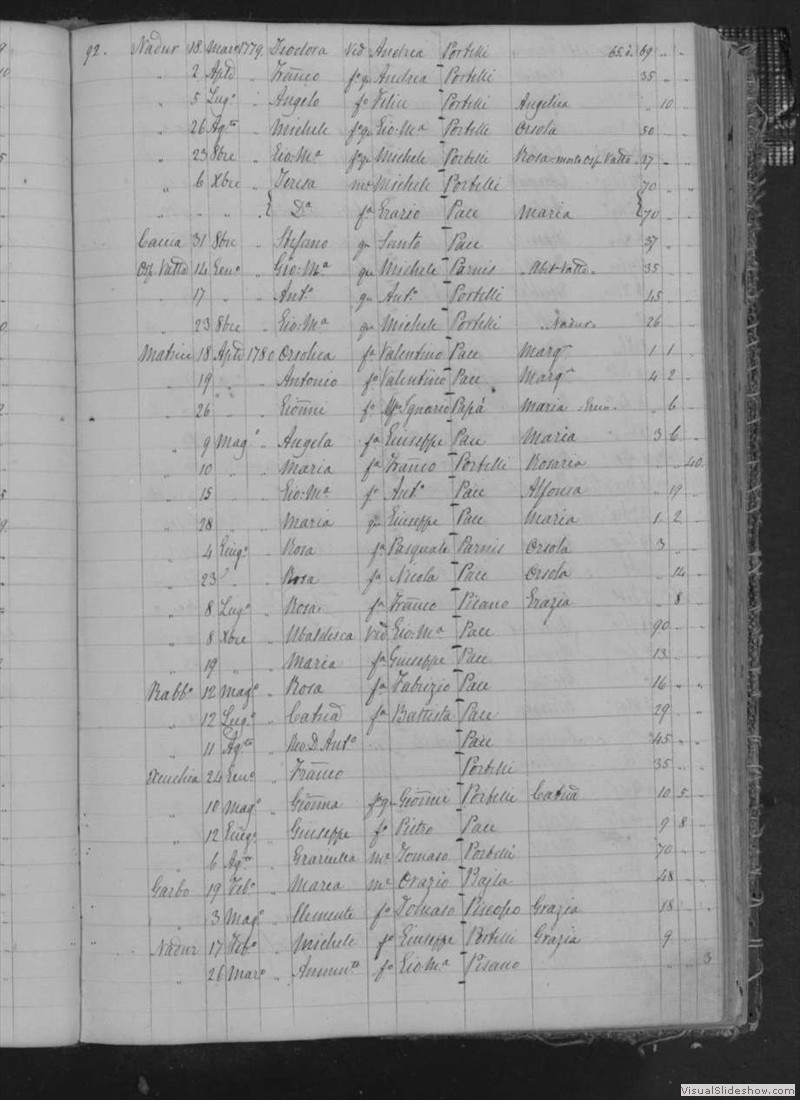 92. Nadur 18 Marzo 1779. Teodora Vid Andrea Portelli 65.ò. 69 " "
" 2 Aple " Franco fo q Andrea Portelli 35 " "
" 5 Lugo " Angelo fo Felice Portelli Angelica " 10 "
" 26 Agto " Michele fo q Gio: Ma Portelli Orsola 50 " "
" 23 8bre " Gio: Ma fo q Michele Portelli Rosa - morto Osp. Vallta 27 " "
" 6 Xbre " Teresa me Michele Portelli 70 " "
" " " " Da fa Grazio Pace Maria 70 " "
Caccia 31 8bre " Stefano q Santo Pace 37 " "
Osp. Vallta 14 Geno " Gio: Ma q Michele Parnis Abit. Vallta. 35 " "
" 17 " " Anto q Anto Portelli 45 " "
" 23 8bre " Gio: Ma q Michele Portelli Nadur. 26 " "
Matrice 18 Aple 1780 Orsolica fa Valentino Pace Margta 1 1 "
" 19 " " Antonio fo Valentino Pace Margta 4 2 "
" 26 " " Gionni fo Mro Ignazio Papà Maria " 6 "
" 9 Mago " Angela fa Giuseppe Pace Maria 3 6 "
" 10 " " Maria fa Franco Portelli Rosaria " " 40.
" 15 " " Gio: Ma fo Anto Pace Alfonsa " 19 "
" 28 " " Maria q Giuseppe Pace Maria 1 2 "
" 4 Giugo " Rosa fa Pasquale Parnis Orsola 3 " "
" 23 " " Rosa fa Nicola Pace Orsola " 14 "
" 8 Lugo " Rosa fa Franco Pisano Grazia " 8 "
" 8 Xbre " Ubaldesca Vid Gio: Ma Pace 90 " "
" 19 " " Maria fa Giuseppe Pace 13 " "
Rabbo 12 Mago " Rosa fa Fabrizio Pace 16 " "
" 12 Lugo " Catna fa Battista Pace 29 " "
" 11 Agto " Rdo D. Anto Pace 45 " "
Xeuchia 24 Geno " Franco Portelli 35 " "
" 10 Mago " Gionna fa q Gionni Portelli Catna 10 5 "
" 12 Giugo " Giuseppe fo Pietro Pace 9 8 "
" 6 Agto " Graziulla me Tomaso Portelli 70 " "
Garbo 19 Febo " Marca me Orazio Bajla 48 " "
" 3 Mago " Clemente fo Tomaso Piscopo Grazia 18 " "
Nadur 17 Febo " Michele fo Giuseppe Portelli Grazia 9 " "
" 26 Maro " fo Gio: Ma Pisano " " 3
VisualSlideshow.com